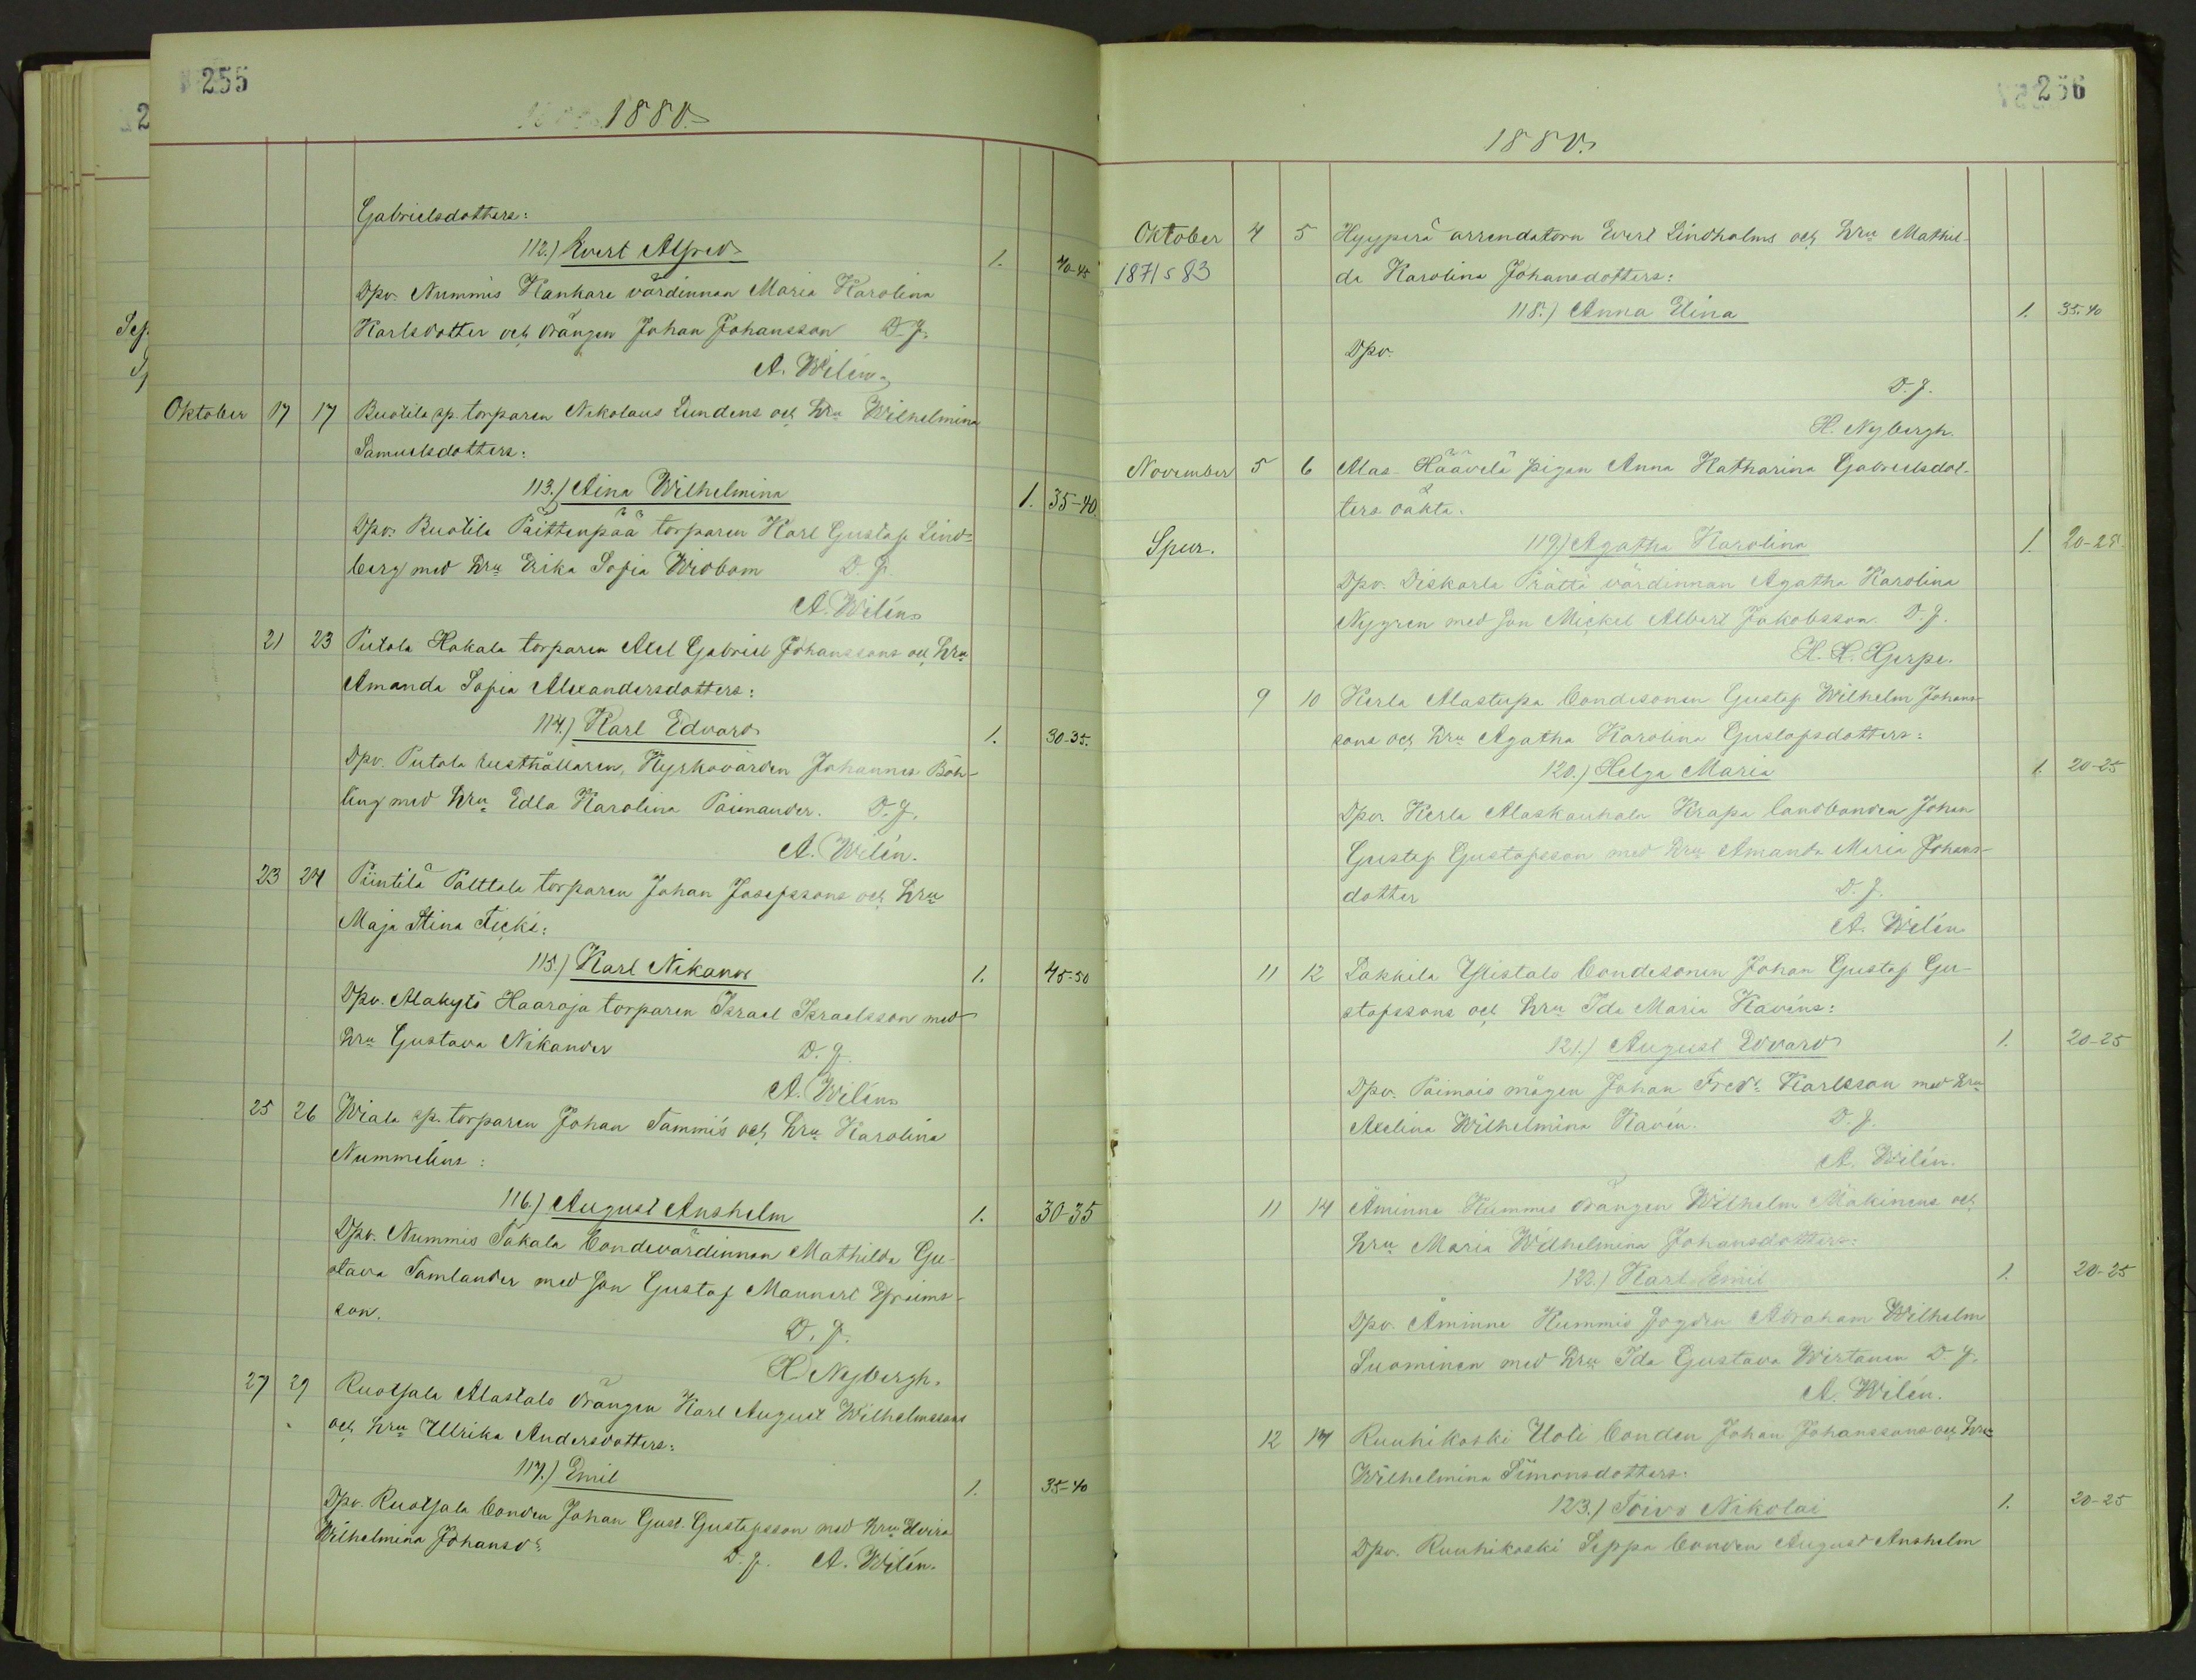 255
1880.
Gabrielsdotters:
112.) Evert Alfred 1. 40-45
Dpv. Nummis Kankare värdinnan Maria Karolina
Karlsdotter och drängen Johan Johansson D. J.
A. Wilén.
Oktober 17 17 Buotila sp. torparen Nikolaus Lundens och hru Wilhelmina
Samuelsdotters:
113.) Aina Wilhelmina 1. 35-40.
Dpv. Buotila Paittenpää torparen Karl Gustaf Lind-
berg med hru Erika Sofia Widbom D. J.
A. Wilén
21 23 Putola Hakala torparen Axel Gabriel Johanssons och hru
Amanda Sofia Alexandersdotters:
114.) Karl Edvard 1. 30-35.
Dpv. Putola rusthållaren, Kyrkovärden Johannes Böh-
ling med hru Edla Karolina Paimander. D. J.
A. Wilén.
23 24 Piintilä Palttala torparen Johan Josefssons och hru
Maja Stina Ficks:
115.) Karl Nikanor 1. 45-50
Dpv. Alakytö Haaroja torparen Israel Israelsson med
hru Gustava Nikander D. J.
A. Wilén
25 26 Wiala sp. torparen Johan Tammis och hru Karolina
Nummelins:
116.) August Anshelm 1. 30-35
Dpv. Nummis Takala bondevärdinnan Mathilda Gu-
stava Tamlander med son Gustaf Mannert Efraims-
son.
D. J.
H Nybergh.
27 29 Ruotsala Alastalo drängen Karl August Wilhelmssons
och hru Ulrika Andersdotters:
117.) Emil 1. 35-40
Dpv. Ruotsala bonden Johan Gust. Gustafsson med hru Elvira
Wilhelmina Johansdr D. J. A. Wilén.
256
1880.
Oktober 4 5 Hyyperä arrendatorn Evert Lindholms och hru Mathil-
1871 s 83 da Karolina Johansdotters:
118.) Anna Elina 1. 35-40
Dpv.
D. J.
H. Nybergh.
November 5 6 Alas-Häävelä pigan Anna Katharina Gabrielsdot-
ters oäkta.
Spur. 119.) Agatha Karolina 1. 20-25.
Dpv. Diskarla Prättä värdinnan Agatha Karolina
Nygren med son Mickel Albert Jakobsson. D. J.
H. R. Hjerpe.
9 10 Kerla Alastupa bondesonen Gustaf Wilhelm Johans-
sons och hru Agatha Karolina Gustafsdotters:
120.) Helga Maria 1. 20-25
Dpv. Kerla Alaskauhala Krapa landbonden Johan
Gustaf Gustafsson med hru Amanda Maria Johans-
dotter D. J.
A. Wilén
11 12 Pakkila Ylistalo bondesonen Johan Gustaf Gu-
stafssons och hru Ida Maria Kavéns:
121.) August Edvard 1. 20-25
Dpv. Paimais mågen Johan Fredr. Karlsson med hru
Axelina Wilhelmina Kavén. D. J.
A. Wilén.
11 14 Åminne Kummis drängen Wilhelm Mäkinens och
hru Maria Wilhelmina Johansdotters:
122.) Karl Emil 1. 20-25
Dpv. Åminne Kummis fogden Abraham Wilhelm
Suominen med hru Ida Gustava Wirtanen D. J.
A. Wilén.
12 14 Ruuhikoski Uoti bonden Johan Johanssons och hru
Wilhelmina Simonsdotters:
123.) Toivo Nikolai 1. 20-25
Dpv. Ruuhikoski Seppa bonden August Anshelm